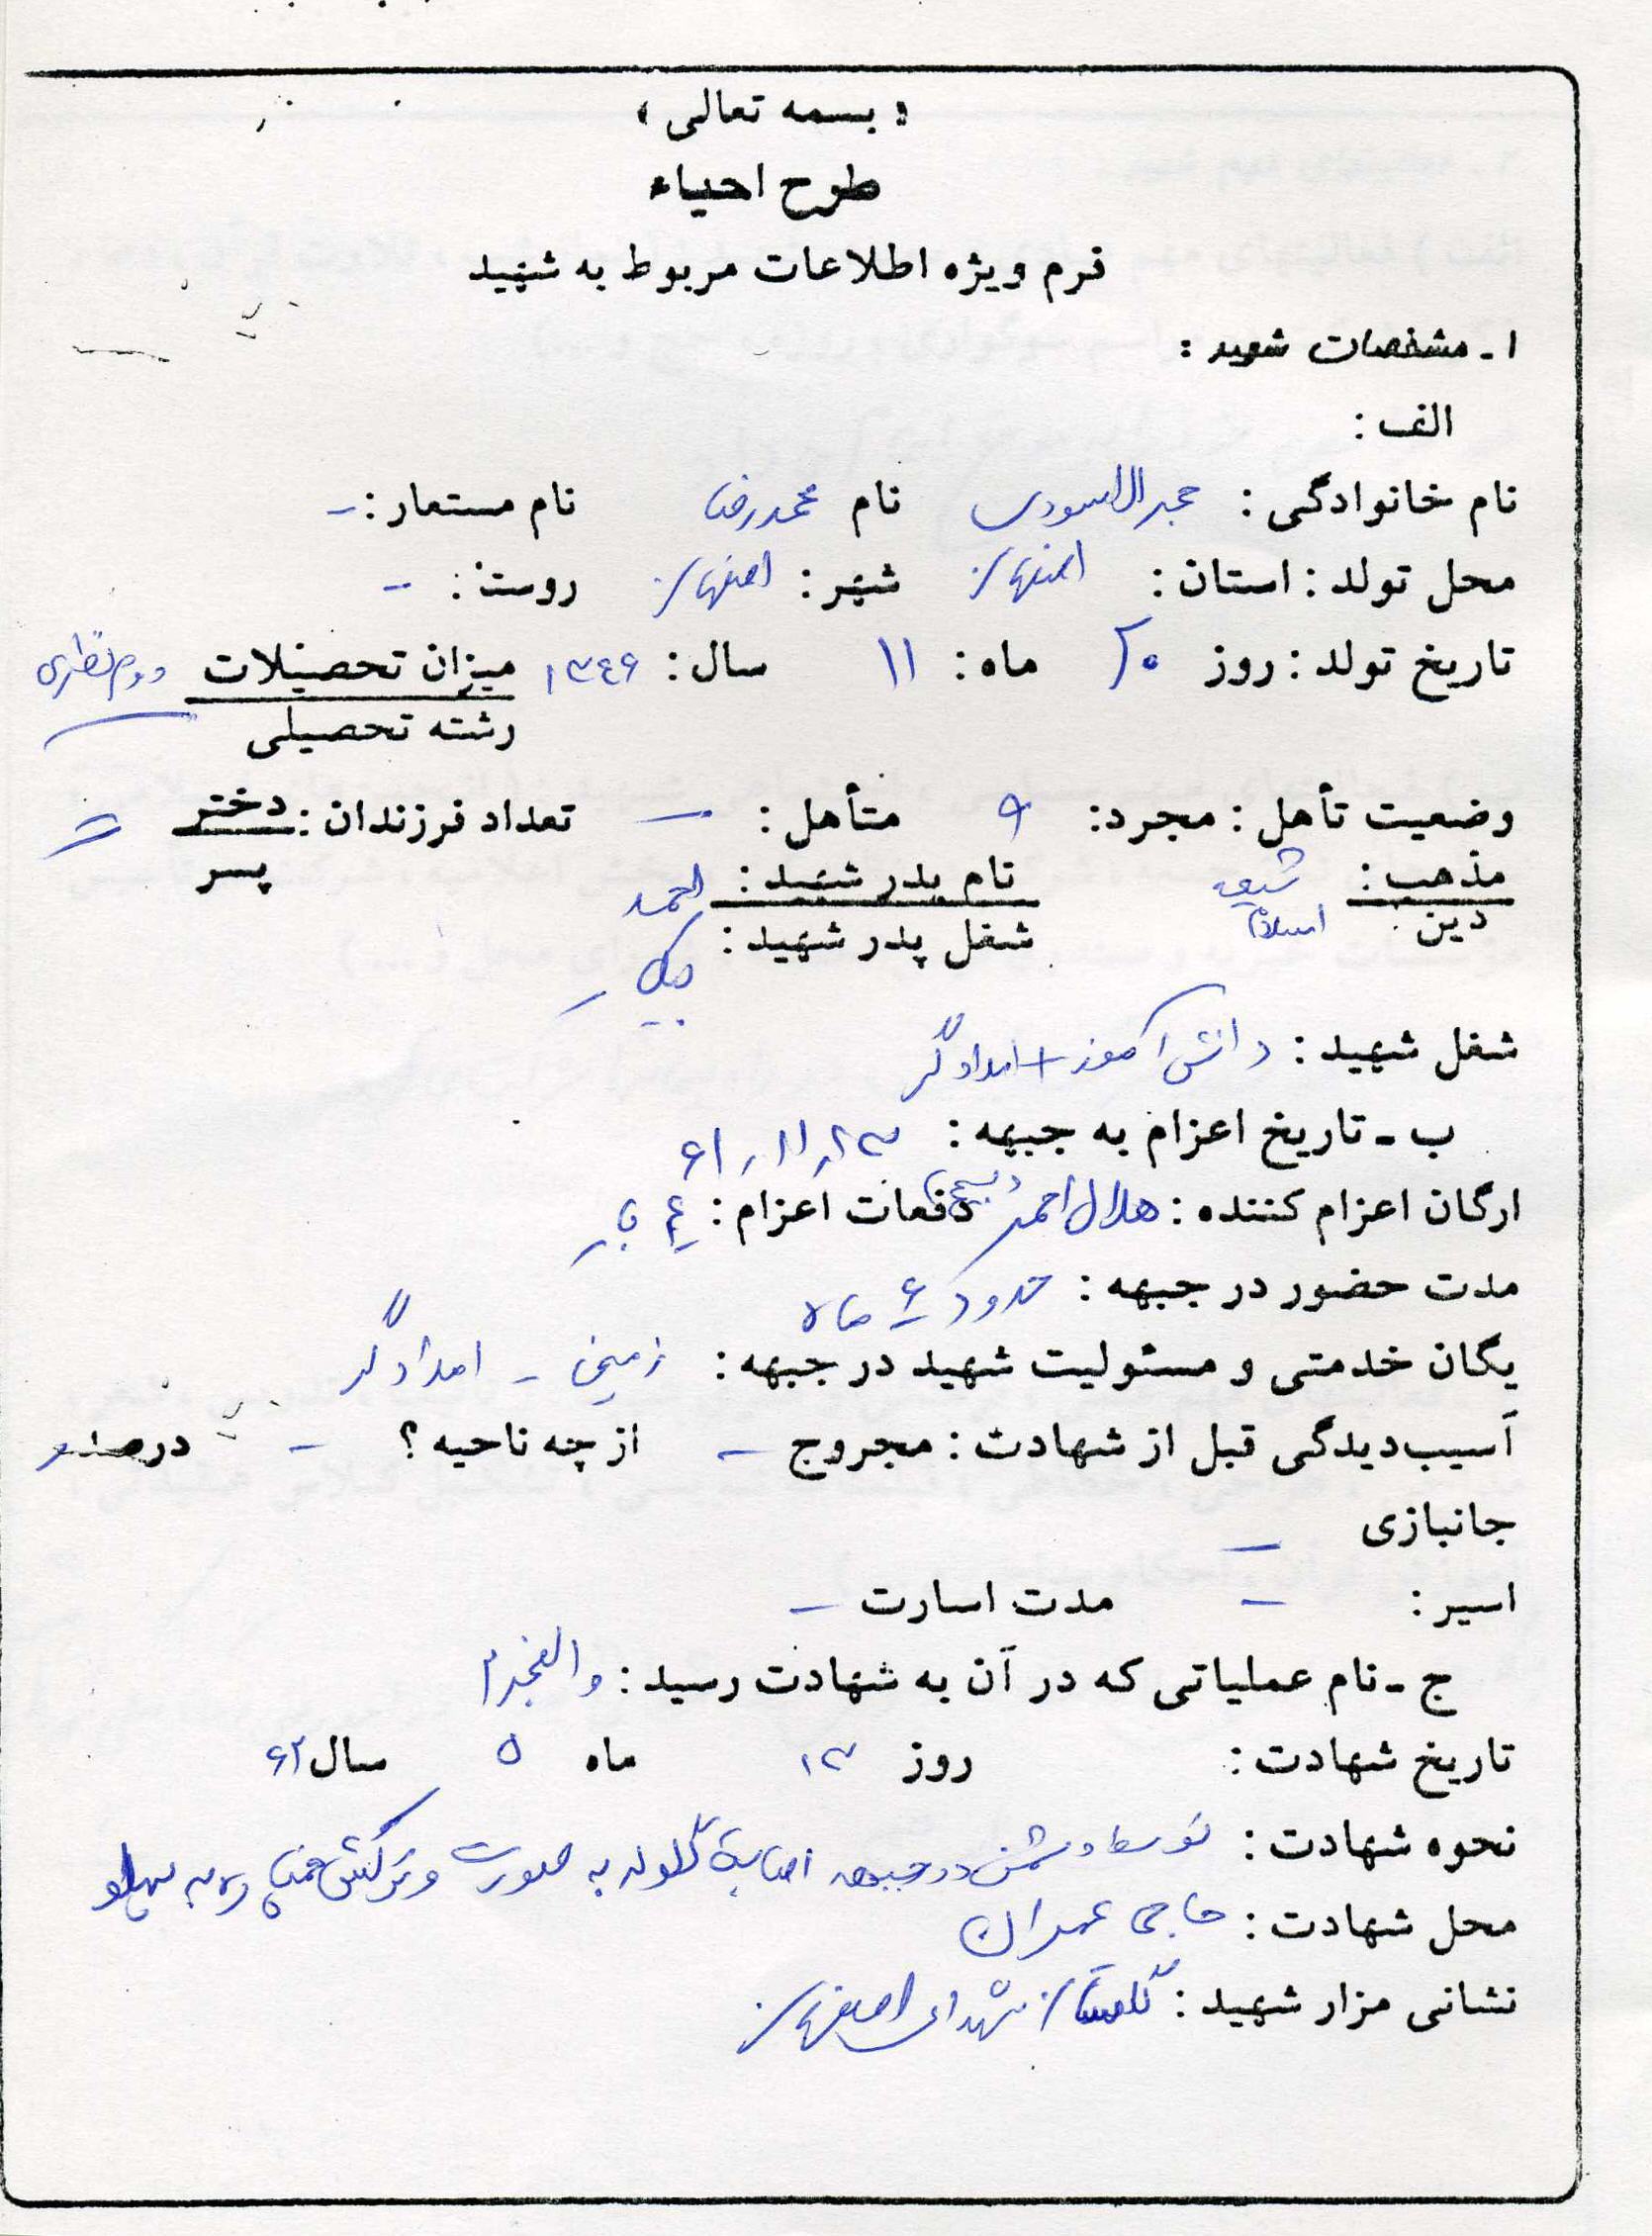 « بسمه تعالی »
طرح احیاء
فرم ویژه اطلاعات مربوط به شهید
۱ - مشخصات شهید :
الف :
نام خانوادگی : حجرالاسودی نام محمدرضا نام مستعار : -
محل تولد : استان : اصفهان شهر : اصفهان روستا : -
تاریخ تولد : روز ۲۰ ماه : ۱۱ سال : ۱۳۴۶ میزان تحصیلات دوم نظری
رشته تحصیلی
وضعیت تأهل : مجرد : متأهل : - تعداد فرزندان : دختر =
پسر
مذهب : شیعه نام پدر شهید : احمد
دین : اسلام شغل پدر شهید :
شغل شهید : دانش آموز + امدادگر
ب - تاریخ اعزام به جبهه : ۶۱،۱۱،۲۳
ارگان اعزام کننده : هلال احمر و بسیج دفعات اعزام : ۴ بار
مدت حضور در جبهه : حدود ۶ ماه
یگان خدمتی و مسئولیت شهید در جبهه : زمینی - امدادگر
آسیب‌دیدگی قبل از شهادت : مجروح - از چه ناحیه ؟ - درصد
جانبازی -
اسیر : - مدت اسارت -
ج - نام عملیاتی که در آن به شهادت رسید : والفجر ۲
تاریخ شهادت : روز ۱۳ ماه ۵ سال ۶۲
نحوه شهادت : توسط دشمن در جبهه اصابت گلوله به صورت و ترکش به پهلو
محل شهادت : حاجی عمران
نشانی مزار شهید : گلستان شهدای اصفهان